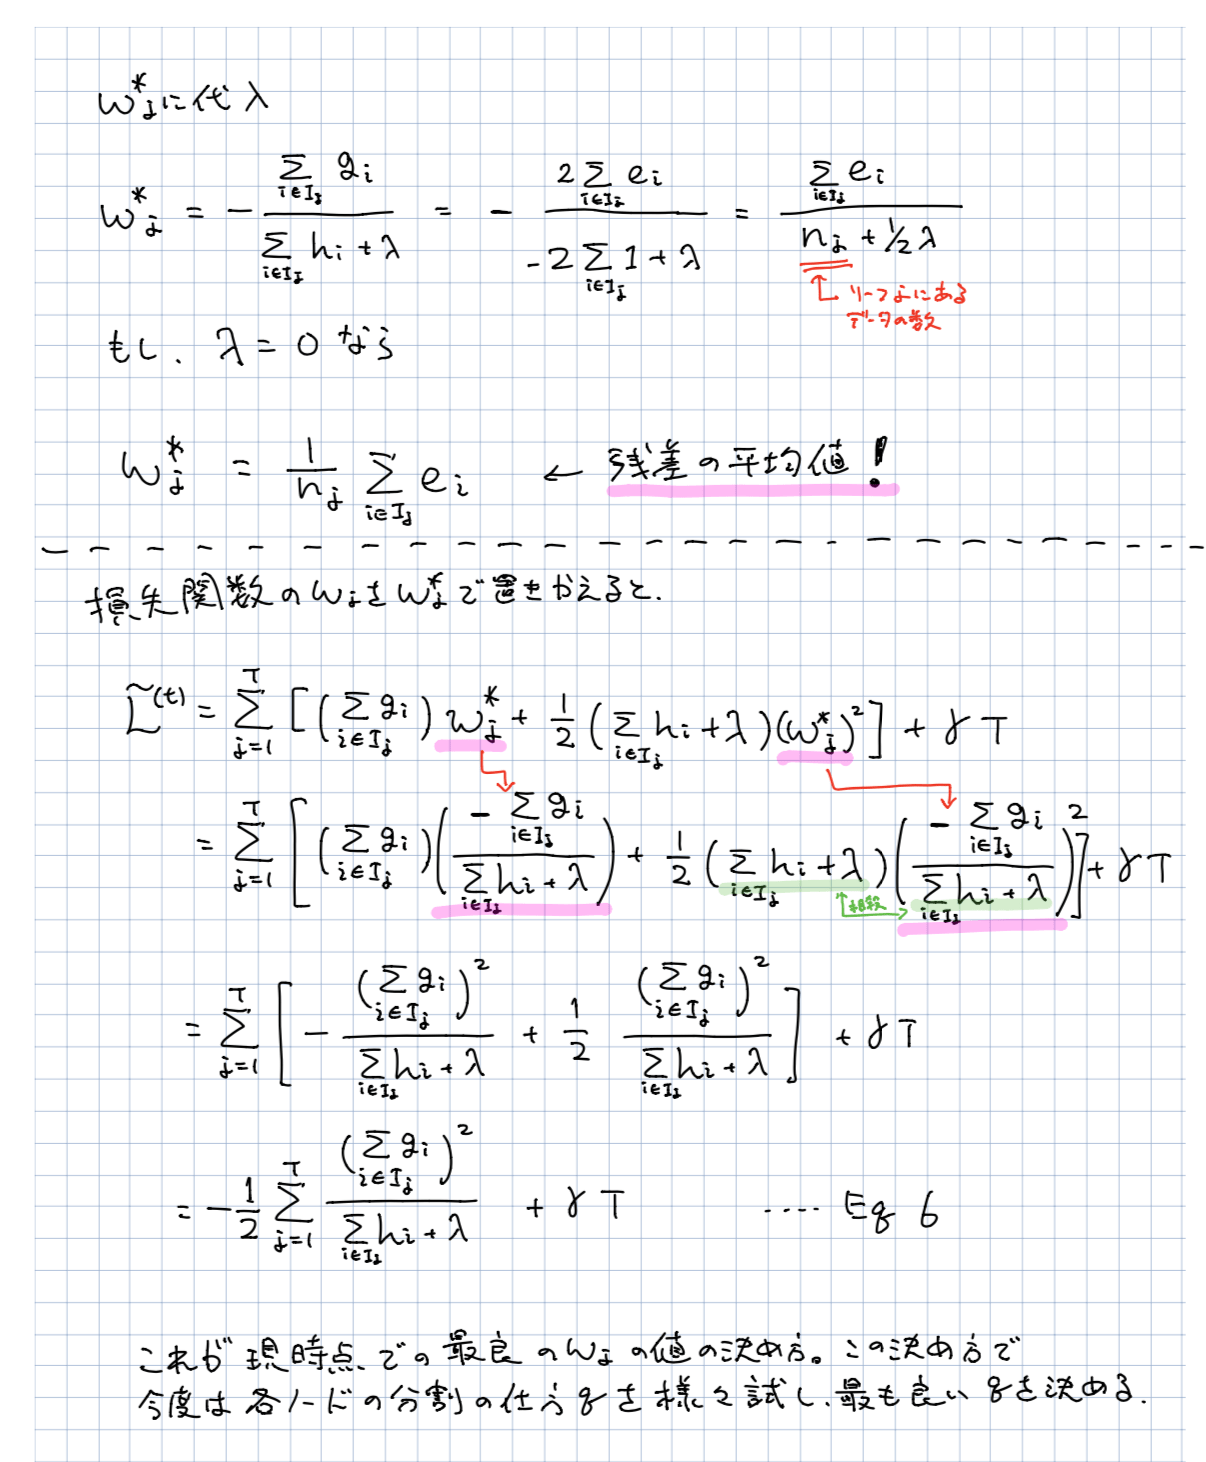 w*j に代入
w*j = - Σ_{i∈Ij} gi / (Σ_{i∈Ij} hi + λ) = - 2Σ_{i∈Ij} ei / (-2Σ_{i∈Ij} 1 + λ) = Σ_{i∈Ij} ei / (nj + ½λ)
リーフjにある
データの数
もし、λ = 0 なら
w*j = 1/nj Σ_{i∈Ij} ei ← 残差の平均値!
損失関数の wj を w*j で置きかえると.
L̃^(t) = Σ_{j=1}^{T} [(Σ_{i∈Ij} gi) w*j + 1/2 (Σ_{i∈Ij} hi + λ)(w*j)²] + γT
= Σ_{j=1}^{T} [(Σ_{i∈Ij} gi)(-Σ_{i∈Ij} gi / (Σ_{i∈Ij} hi + λ)) + 1/2 (Σ_{i∈Ij} hi + λ)(-Σ_{i∈Ij} gi / (Σ_{i∈Ij} hi + λ))²] + γT
相殺
= Σ_{j=1}^{T} [- (Σ_{i∈Ij} gi)² / (Σ_{i∈Ij} hi + λ) + 1/2 (Σ_{i∈Ij} gi)² / (Σ_{i∈Ij} hi + λ)] + γT
= -1/2 Σ_{j=1}^{T} (Σ_{i∈Ij} gi)² / (Σ_{i∈Ij} hi + λ) + γT ···· Eq 6
これが現時点での最良のwjの値の決め方。この決め方で
今度は各ノードの分割の仕方qを様々試し、最も良いqを決める.